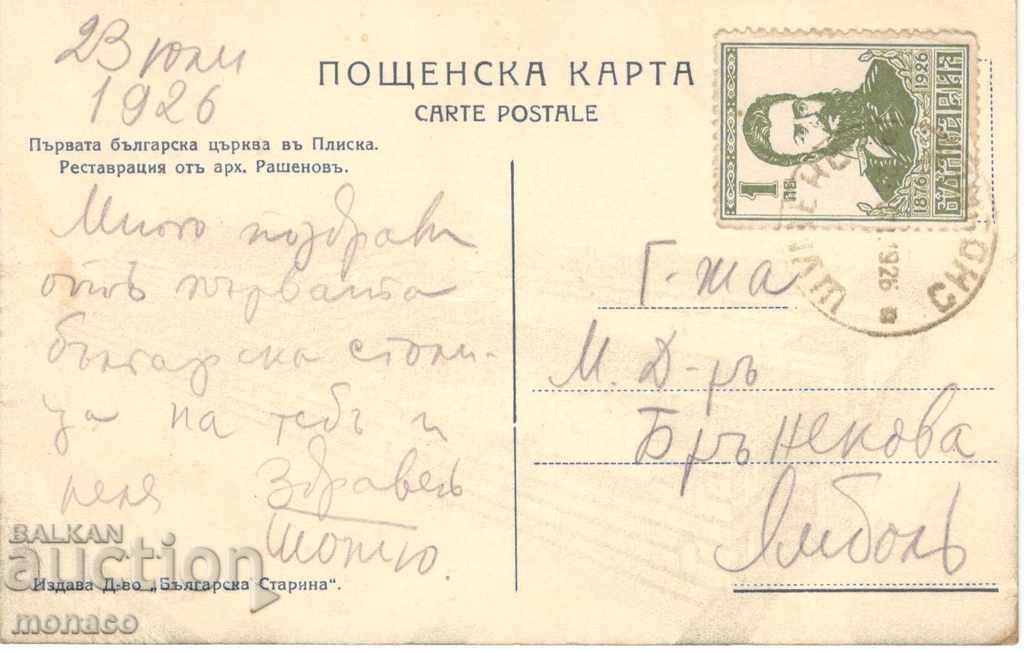 23 юли
1926
ПОЩЕНСКА КАРТА
CARTE POSTALE
Първата българска църква въ Плиска.
Реставрация отъ арх. Рашеновъ.
Много поздрави
отъ първата
българска столи-
ца на тебъ и
леля Здравец
Шопгю.
Издава Д-во „Българска Старина“.
1
лв
1876 1926
БЪЛГАРИЯ
1926
Г-жа
М. Д-ръ
Брънекова
Ямболъ
BALKAN
auction
monaco